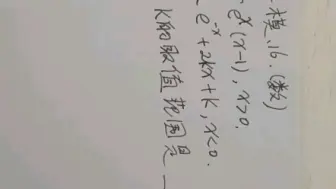 模.16.(数)
e^x(x-1), x>0.
e^-x+2kx+k, x<0.
K的取值范围是